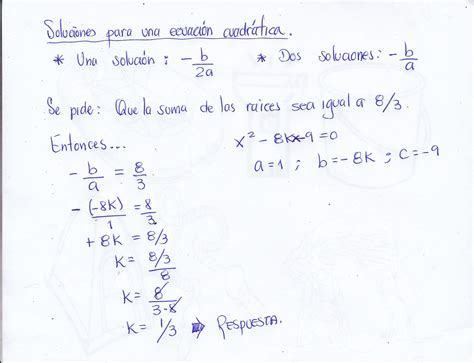 Soluciones para una ecuación cuadrática.
* Una solución : -b/2a    * Dos soluciones: -b/a
Se pide: Que la suma de las raices sea igual a 8/3.
Entonces...
x² - 8kx - 9 = 0
a = 1 ; b = -8K ; c = -9
-b/a = 8/3
-(-8K)/1 = 8/3
+8K = 8/3
K = 8/3/8
K = 8/3·8
K = 1/3 ⇒ RESPUESTA.